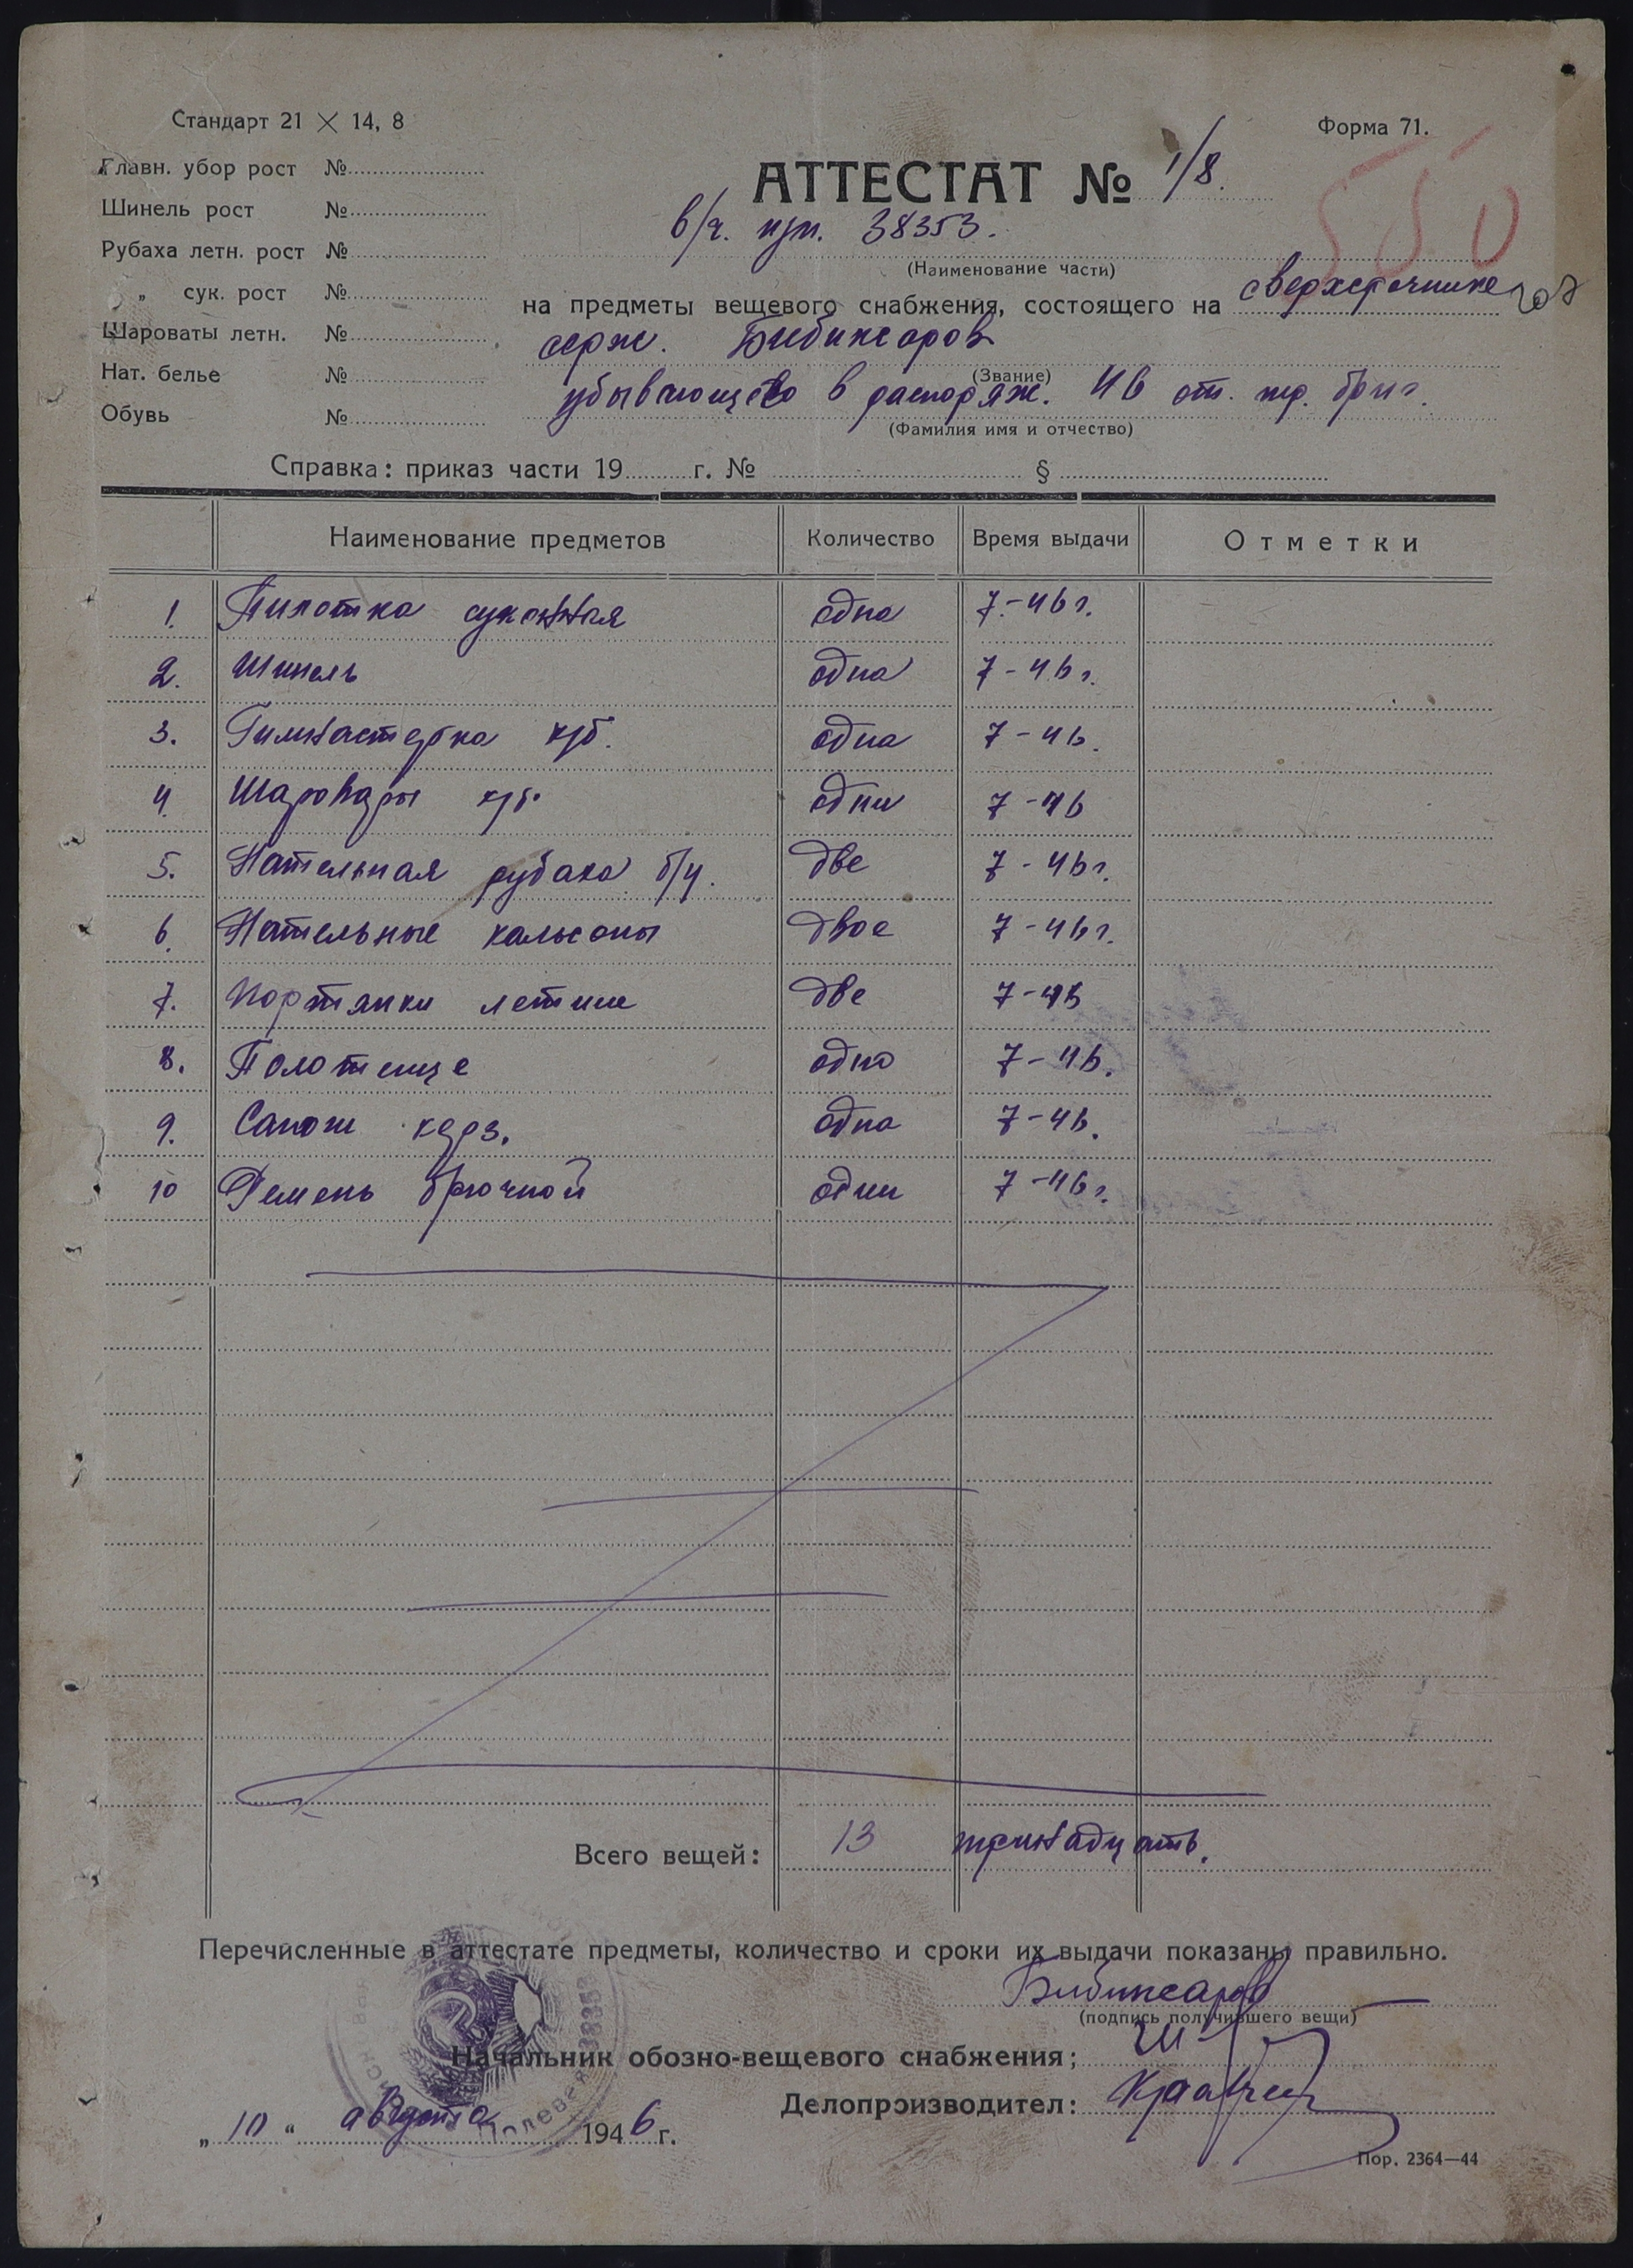 Стандарт 21 × 14, 8
Форма 71.
Главн. убор рост №
Шинель рост №
Рубаха летн. рост №
„ сук. рост №
Шароваты летн. №
Нат. белье №
Обувь №
АТТЕСТАТ № 1/8.
550
в/ч. п/п. 38353.
(Наименование части)
на предметы вещевого снабжения, состоящего на сверхсрочник
серж. Бибиксаров
(Звание)
убывающего в распоряж. 46 от. тр. бриг.
(Фамилия имя и отчество)
Справка: приказ части 19 г. № §
Наименование предметов Количество Время выдачи Отметки
1. Пилотка суконная одна 7-46 г.
2. Шинель одна 7-46 г.
3. Гимнастерка х/б. одна 7-46.
4. Шаровары х/б. одни 7-46
5. Нательная рубаха б/у. две 7-46 г.
6. Нательные кальсоны двое 7-46 г.
7. Портянки летние две 7-46
8. Полотенце одно 7-46.
9. Сапоги керз. одна 7-46.
10 Ремень брючной один 7-46 г.
Всего вещей: 13 тринадцать.
Перечисленные в аттестате предметы, количество и сроки их выдачи показаны правильно.
Бибиксаров
(подпись получившего вещи)
Начальник обозно-вещевого снабжения;
Делопроизводител:
„10“ августа 1946 г.
Полевая 38353
Пор. 2364—44